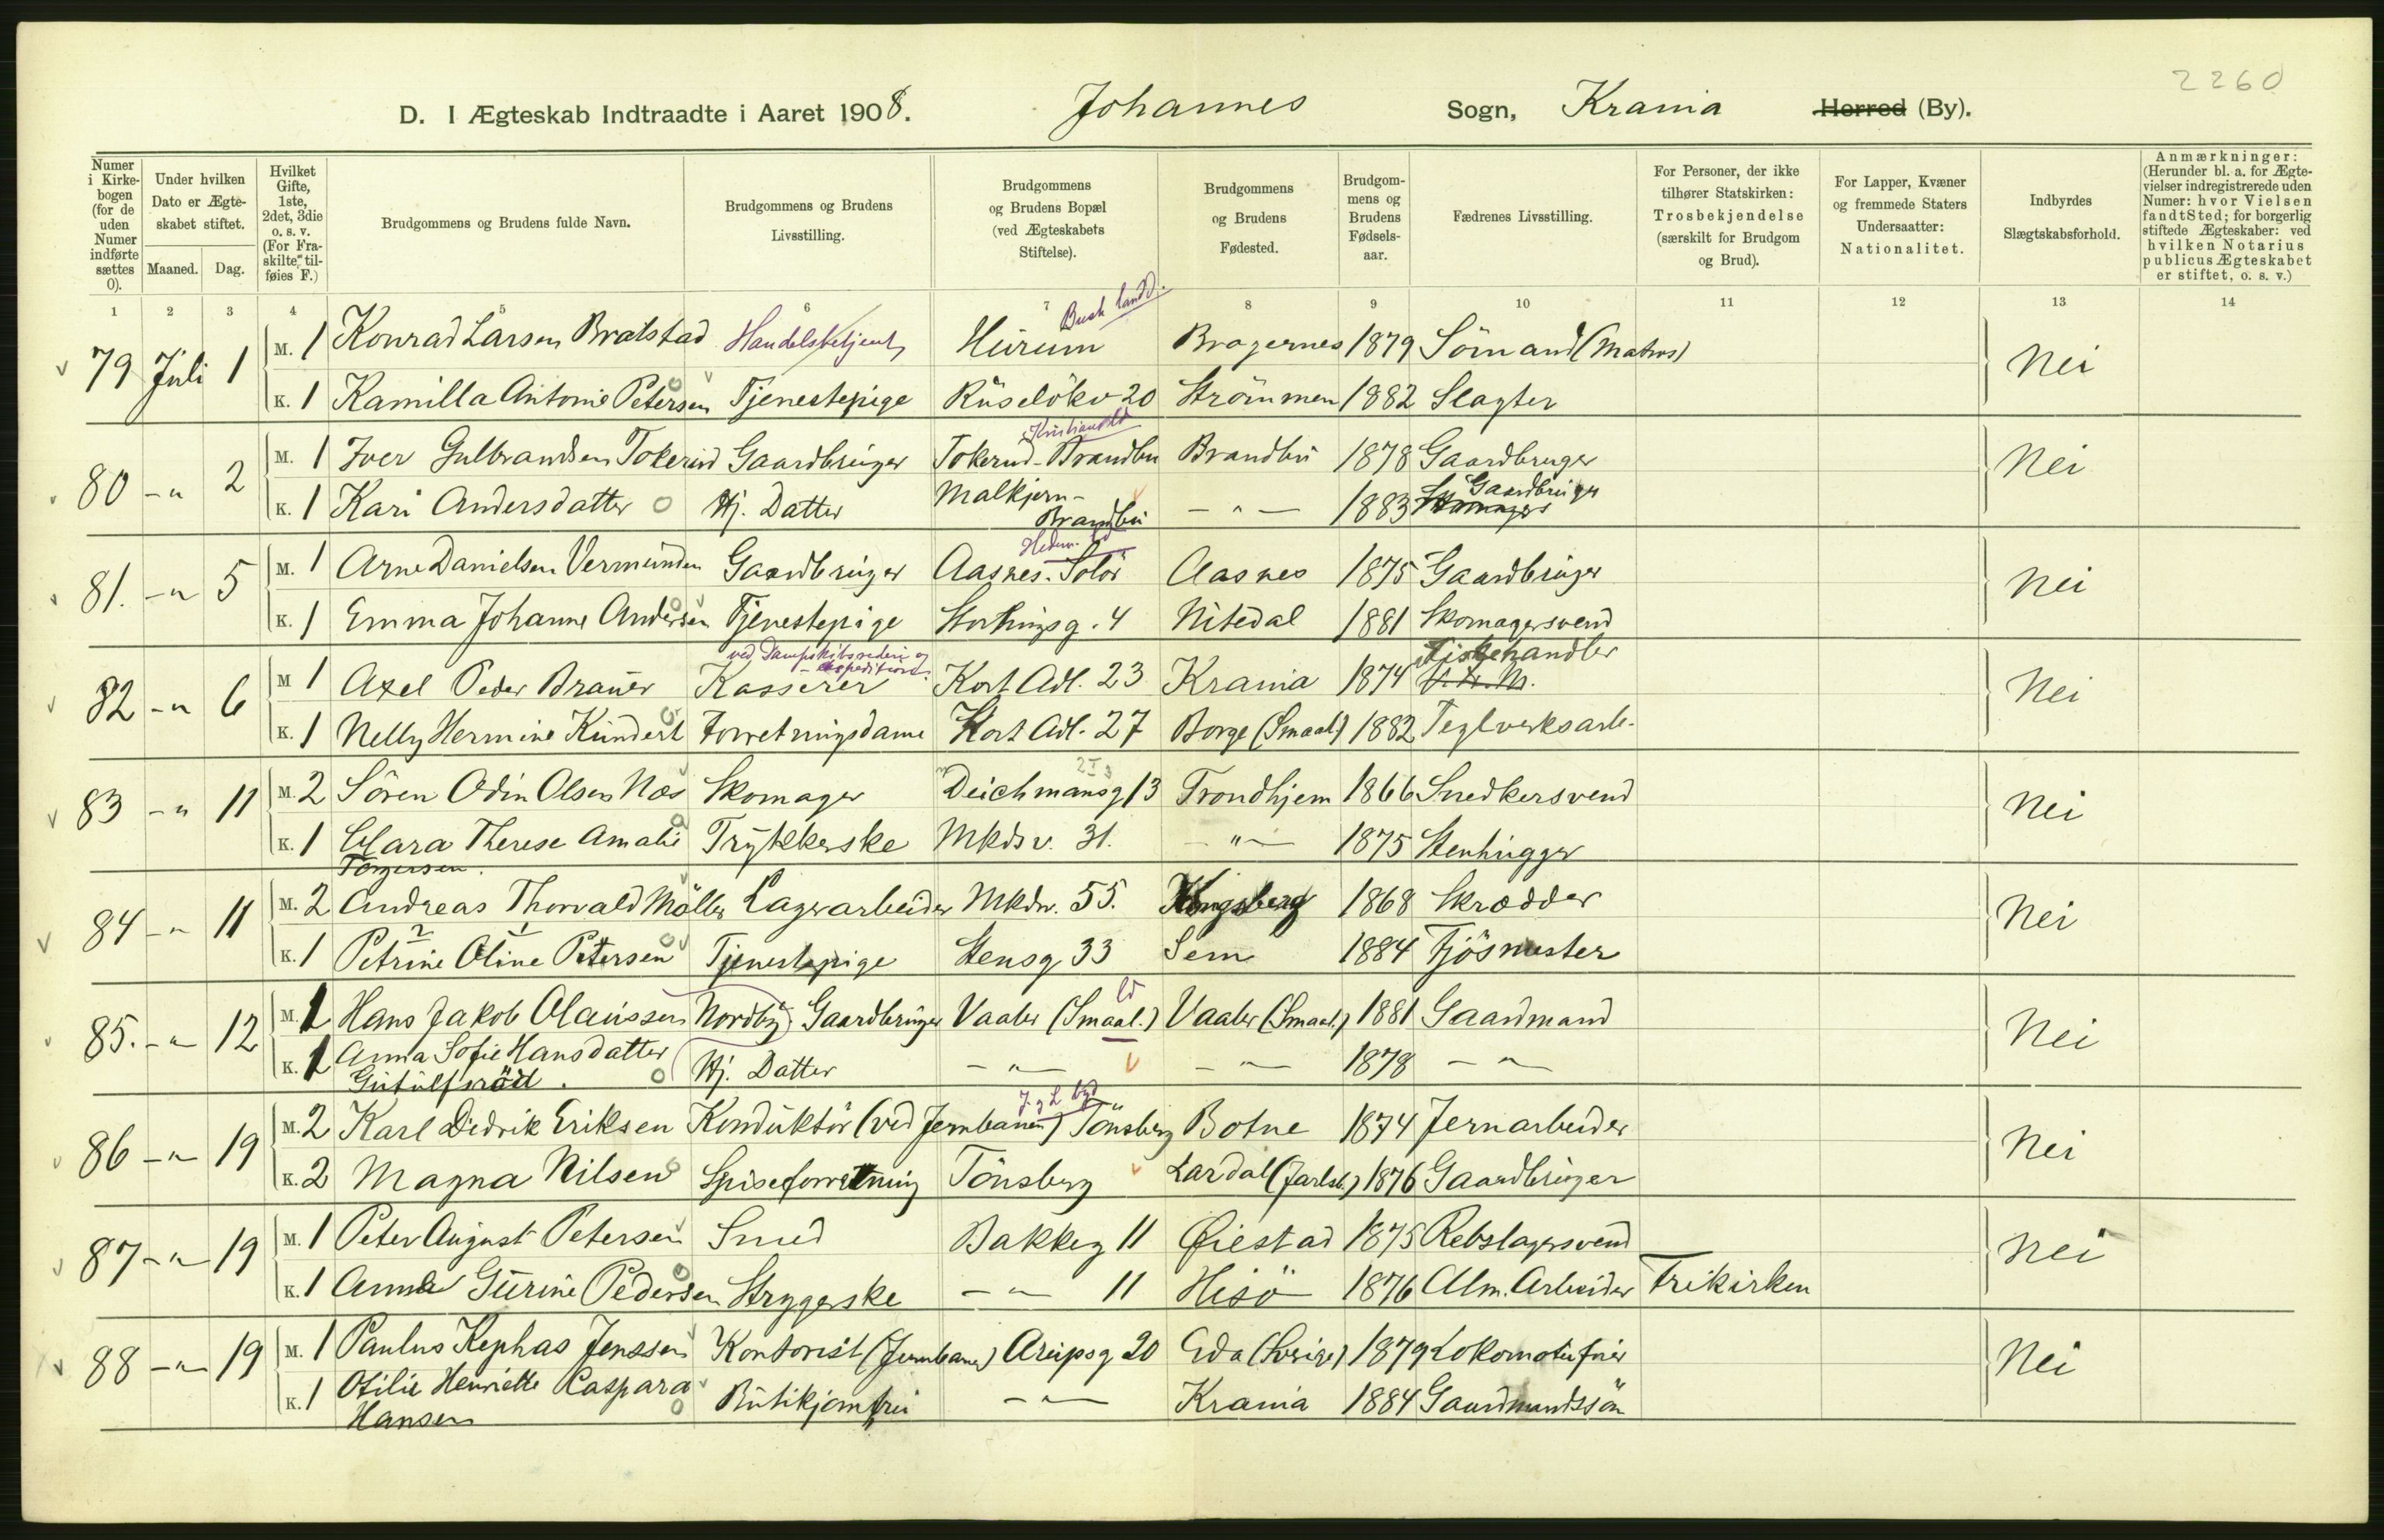 2260
D. I Ægteskab Indtraadte i Aaret 1908. Johannes Sogn, Krania Herred (By).
Numer i Kirke-bogen (for de uden Numer indførte sættes 0).
Under hvilken Dato er Ægte-skabet stiftet.
Maaned. Dag.
Hvilket Gifte, 1ste, 2det, 3die o. s. v. (For Fra-skilte til-føies F.)
Brudgommens og Brudens fulde Navn.
Brudgommens og Brudens Livsstilling.
Brudgommens og Brudens Bopæl (ved Ægteskabets Stiftelse).
Brudgommens og Brudens Fødested.
Brudgom-mens og Brudens Fødsels-aar.
Fædrenes Livsstilling.
For Personer, der ikke tilhører Statskirken: Trosbekjendelse (særskilt for Brudgom og Brud).
For Lapper, Kvæner og fremmede Staters Undersaatter: Nationalitet.
Indbyrdes Slægtskabsforhold.
Anmærkninger: (Herunder bl. a. for Ægte-vielser indregistrerede uden Numer: hvor Vielsen fandt Sted; for borgerlig stiftede Ægteskaber: ved hvilken Notarius publicus Ægteskabet er stiftet, o. s. v.)
1 2 3 4 5 6 7 8 9 10 11 12 13 14
Busk landd.
79 Juli 1 M. 1 Konrad Larsen Bratstad Handelsbetjent Hurum Bragernes 1879 Sömand (Matros) Nei
K. 1 Kamilla Antonie Petersen Tjenestepige Ruselökv 20 Strömmen 1882 Slagter
Kristians ld
80 -"- 2 M. 1 Iver Gulbrandsen Tokerud Gaardbruger Tokerud-Brandbu Brandbu 1878 Gaardbruger Nei
K. 1 Kari Andersdatter Hj. Datter Malkjern-Brandbu -"- 1883 Gaardbruger
Hedem. ld
81. -"- 5 M. 1 Arne Danielsen Vermunden Gaardbruger Aasnes-Solör Aasnes 1875 Gaardbruger Nei
K. 1 Emma Johanne Andersen Tjenestepige Storthingsg. 4 Nitedal 1881 Skomagersvend
ved Dampskibsrederi og -expedition. Fiskehandler
82 -"- 6 M 1 Axel Peder Brauer Kasserer Kort Adl. 23 Krania 1874 Nei
K. 1 Nelly Hermine Kundert Forretningsdame Kort Adl. 27 Borge (Smaal) 1882 Teglverksarb.
83 -"- 11 M. 2 Sören Odin Olsen Næs Skomager Deichmansg 13 Trondhjem 1866 Snedkersvend Nei
K. 1 Clara Therese Amalie Trykkerske Mkdsv. 31. -"- 1875 Stenhugger
Torgersen.
84 -"- 11 M. 2 Andreas Thorvald Möller Lagerarbeider Mkdv. 55. Kongsberg 1868 Skrædder Nei
K. 1 Petrine Oline Petersen Tjenestepige Stensg 33 Sem 1884 Fjösmester
85. -"- 12 M. 1 Hans Jakob Olaussen (Nordby) Gaardbruger Vaaler (Smaal.) Vaaler (Smaal.) 1881 Gaardmand Nei
K. 1 Anna Sofie Hansdatter Hj. Datter -"- -"- 1878 -"-
Gutulfsröd.
J. g L byd
86 -"- 19 M. 2 Karl Didrik Eriksen Konduktör (ved Jernbanen) Tönsberg Botne 1874 Jernarbeider Nei
K. 2 Magna Nilsen Spiseforretning Tönsberg Lardal (Jarlsb.) 1876 Gaardbruger
87 -"- 19 M. 1 Peter August Petersen Smed Bakkeg 11 Øiestad 1875 Rebslagersvend Nei
K. 1 Anna Gurine Pedersen Strygerske -"- 11 Hisö 1876 Alm. Arbeider Frikirken
88 -"- 19 M. 1 Paulus Kephas Jenssen Kontorist (Jernbanen) Arupsg 20 Eda (Sverige) 1879 Lokomotivfører Nei
K. 1 Otilie Henriette Caspara Butikjomfru -"- Krania 1884 Gaardmandssön
Hansen